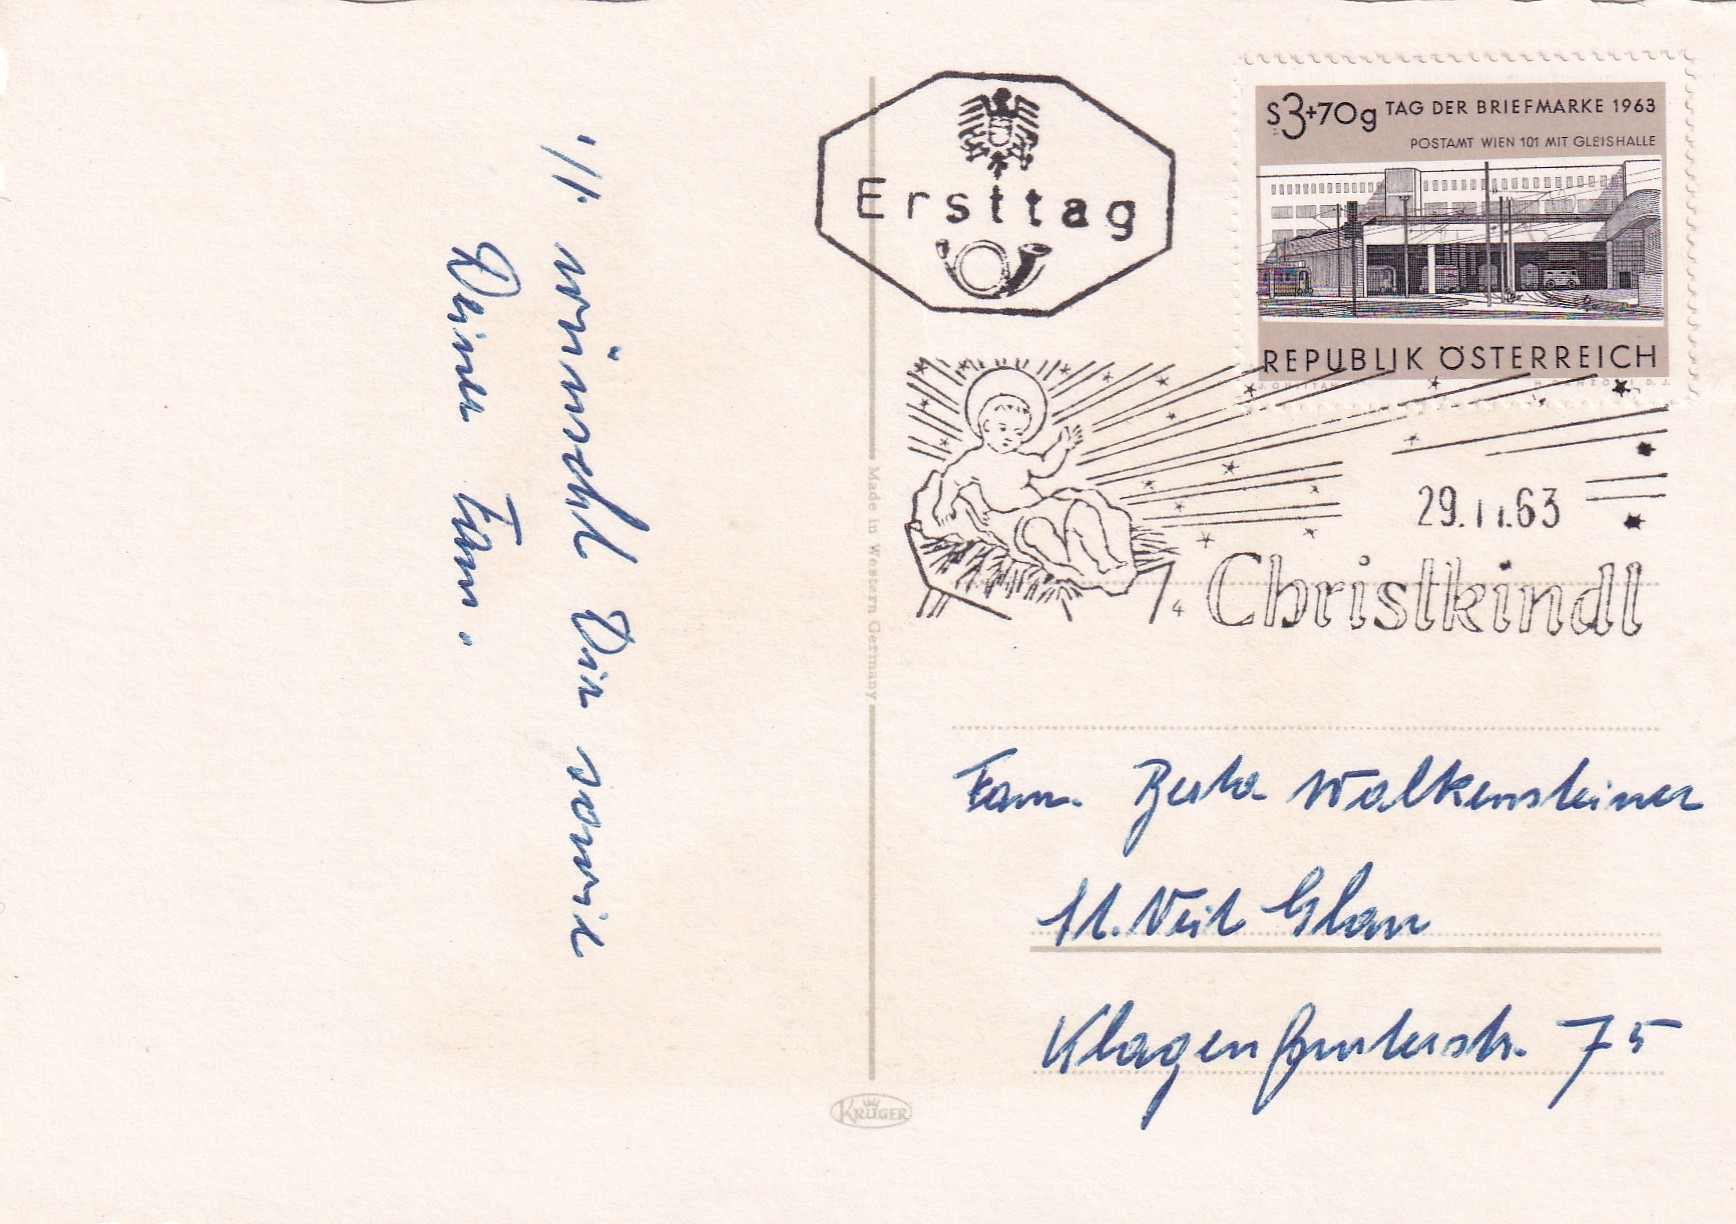 ·/1.
wünscht Dir sowie
Deiner Fam.
Ersttag
S3+70g TAG DER BRIEFMARKE 1963
POSTAMT WIEN 101 MIT GLEISHALLE
REPUBLIK ÖSTERREICH
29.11.63
4 Christkindl
Made in Western Germany
Fam. Berta Walkensteiner
St. Veit Glan
Klagenfurterstr. 75
KRÜGER